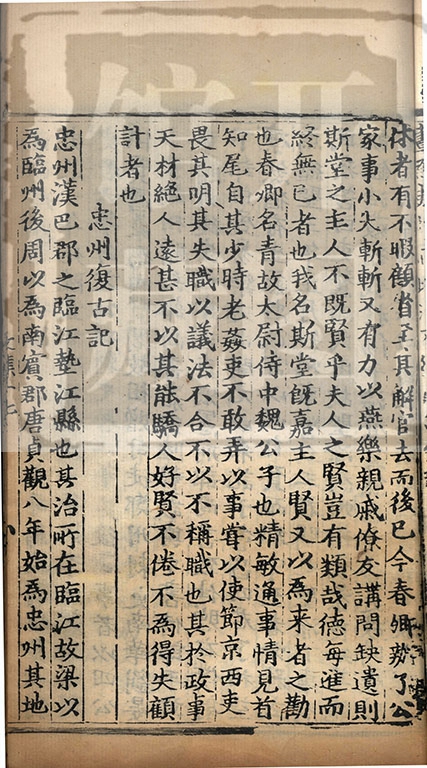 休者有不暇顧省至其解官去而後已今春卿勤了公
家事小大斬斬又有力以燕樂親戚僚友講問缺遺則
斯堂之主人不既賢乎夫人之賢豈有類哉德每進而
終無已者也我名斯堂既嘉主人賢又以為来者之勸
也春卿名青故太尉侍中魏公子也精敏通事情見首
知尾自其少時老姦吏不敢弄以事嘗以使節京西吏
畏其明其失職以議法不合不以不稱職也其於政事
天材絕人遠甚不以其能驕人好賢不倦不為得失顧
計者也
忠州復古記
忠州漢巴郡之臨江墊江縣也其治所在臨江故梁以
為臨州後周以為南賓郡唐貞觀八年始為忠州其地